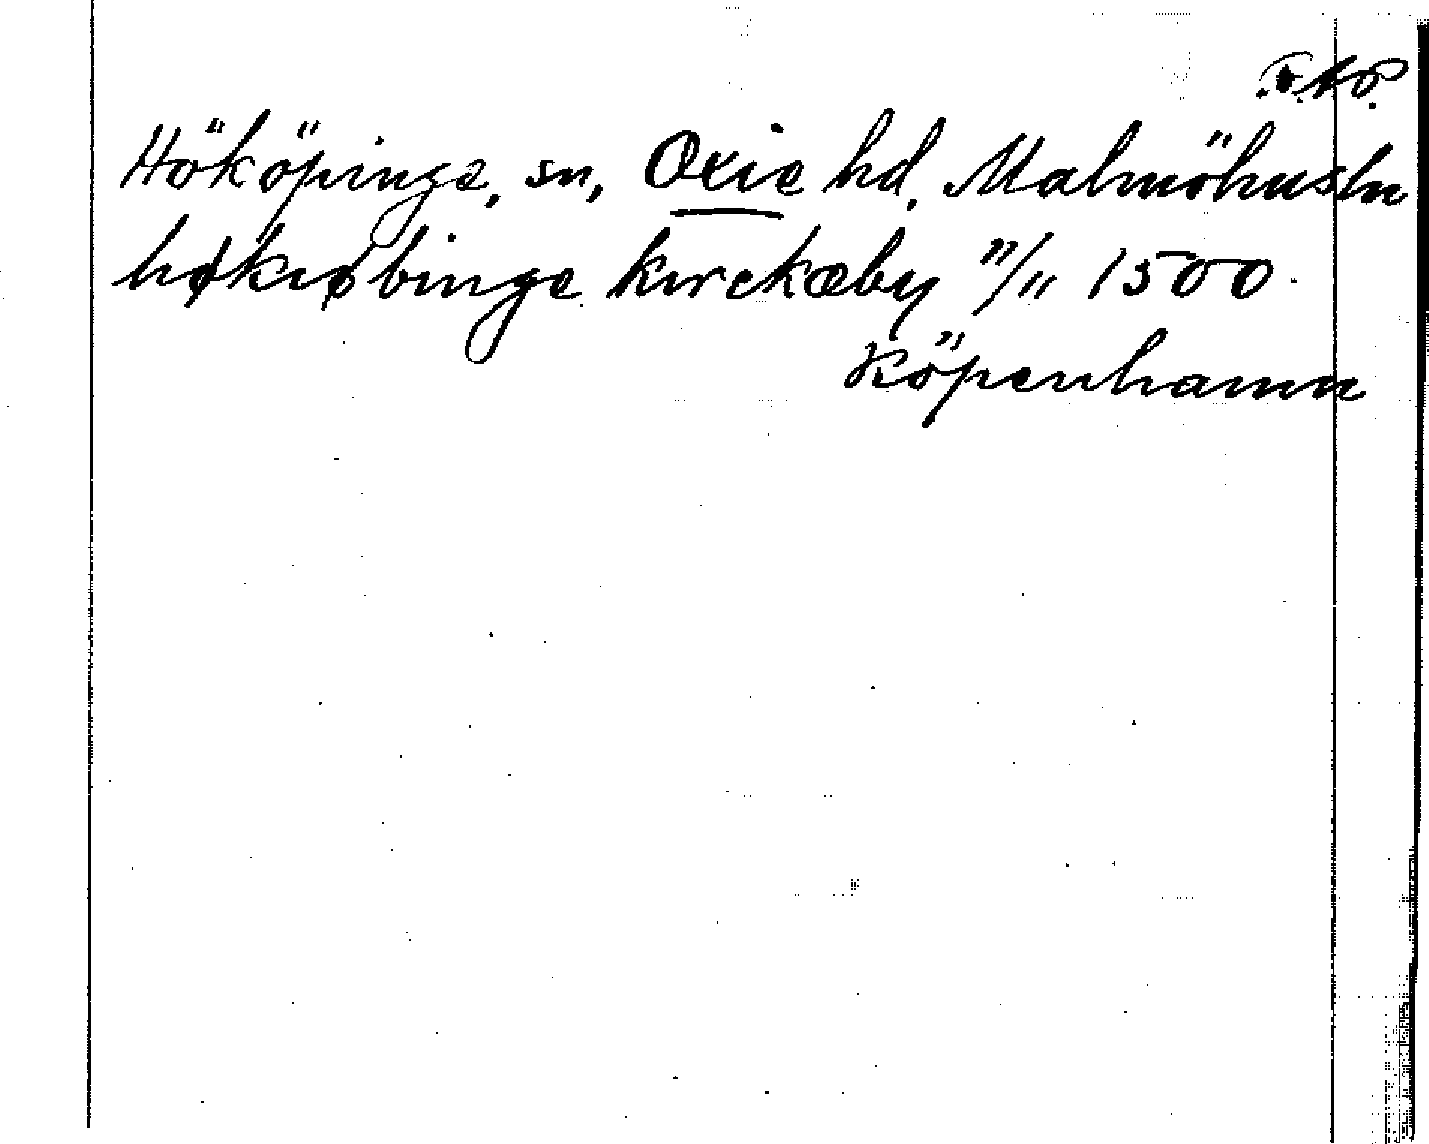 Hököpinge, sn, Oxie hd, Malmöhus ln
høkiøbinge kirckæby 11/11 1500.
Köpenhamn